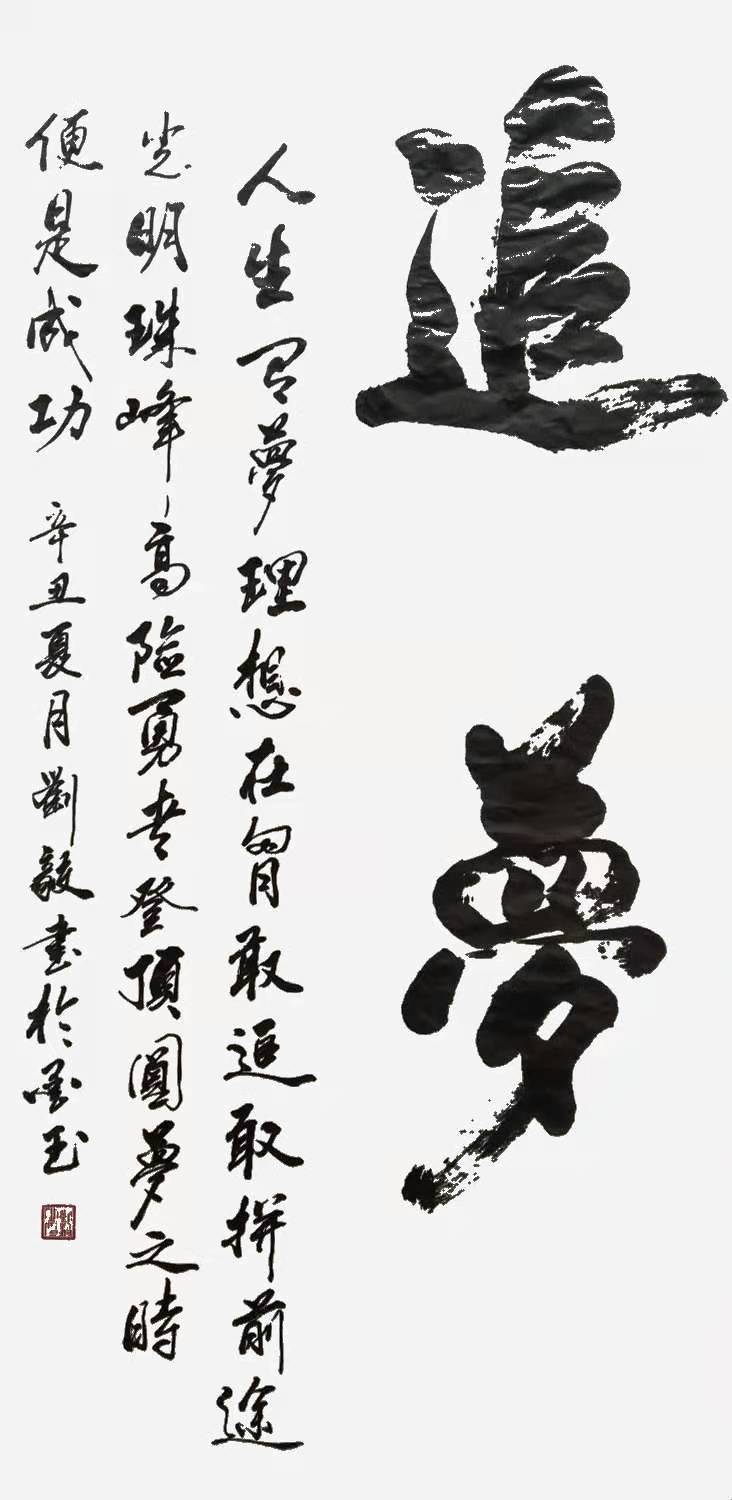 追夢
人生有夢理想在胷敢追敢拼前途
光明珠峰高險勇者登頂圓夢之時
便是成功 辛丑夏月劉毅書於墨玉